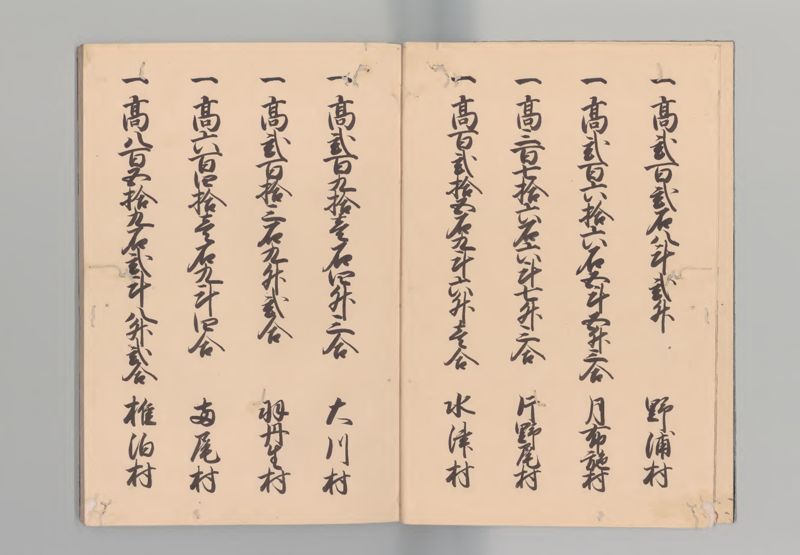 一 高弐百弐石八斗弐升 野浦村
一 高弐百六拾六石五斗五升三合 月布施村
一 高三百七拾六石六斗七升三合 片野尾村
一 高百弐拾五石九斗六升壱合 水津村
一 高弐百九拾壱石四升三合 大川村
一 高弐百拾三石九升弐合 羽丹生村
一 高六百四拾壱石九斗四合 両尾村
一 高八百五拾九石弐斗八升弐合 椎泊村